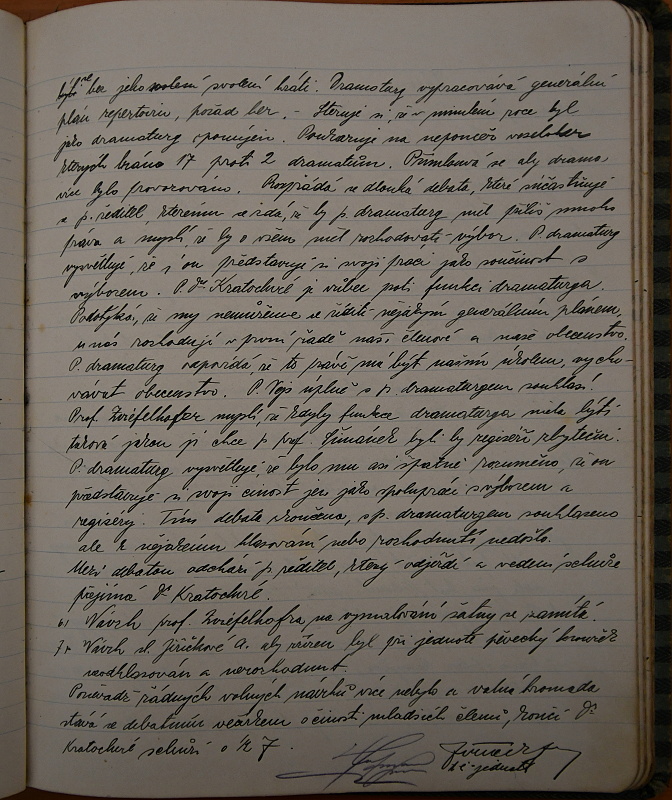 se bez jeho svolení hráti. Dramaturg vypracovává generální
plán repertoiru, pořad her, - Stěžuje si, že v minulém roce byl
jako dramaturg opomíjen. Poukazuje na nepoměr veseloher
kterých hráno 17 proti 2 dramatům. Přimlouvá se aby drama
více bylo provozováno. Rozpřádá se dlouhá debata, které súčastňuje
se p. ředitel, kterému se zdá, že by p. dramaturg měl příliš mnoho
práva a myslí, že by o všem měl rozhodovati výbor. P. dramaturg
vysvětluje, že i on představuje si svoji práci jako součinost s
výborem. P. Dr Kratochvíl je vůbec proti funkci dramaturga.
Podotýká, že my nemůžeme se říditi nějakým generálním plánem,
u nás rozhodují v první řadě naši členové a naše obecenstvo.
P. dramaturg odpovídá, že to právě má být naším úkolem, vycho-
vávat obecenstvo. P. Vojs úplně s p. dramaturgem souhlasí.
Prof. Zwiefelhofer myslí, že kdyby funkce dramaturga měla býti
taková jakou ji chce p. prof. Šimanek byli by regiseři zbyteční.
P. dramaturg vysvětluje, že bylo mu asi špatně rozuměno, že on
představuje si svoji činost jen jako spolupráci s výborem a
regiséry. Tím debata skončena, s p. dramaturgem souhlaseno
ale k nějakému hlasování nebo rozhodnutí nedošlo.
Mezi debatou odchází p. ředitel, který odjíždí a vedení schůze
přejímá Dr Kratochvíl.
6, Návrh prof. Zwiefelhofra na vymalování šatny se zamítá.
7, Návrh sl. Jiřičkové A. aby zřízen byl při jednotě pěvecký kroužek
neodhlasován a nerozhodnut.
Poněvadž řádných volných návrhů více nebylo a valná hromada
stává se debatním večírkem o činosti mladších členů, končí Dr
Kratochvíl schůzi o ½ 7.
t. č. jednatel